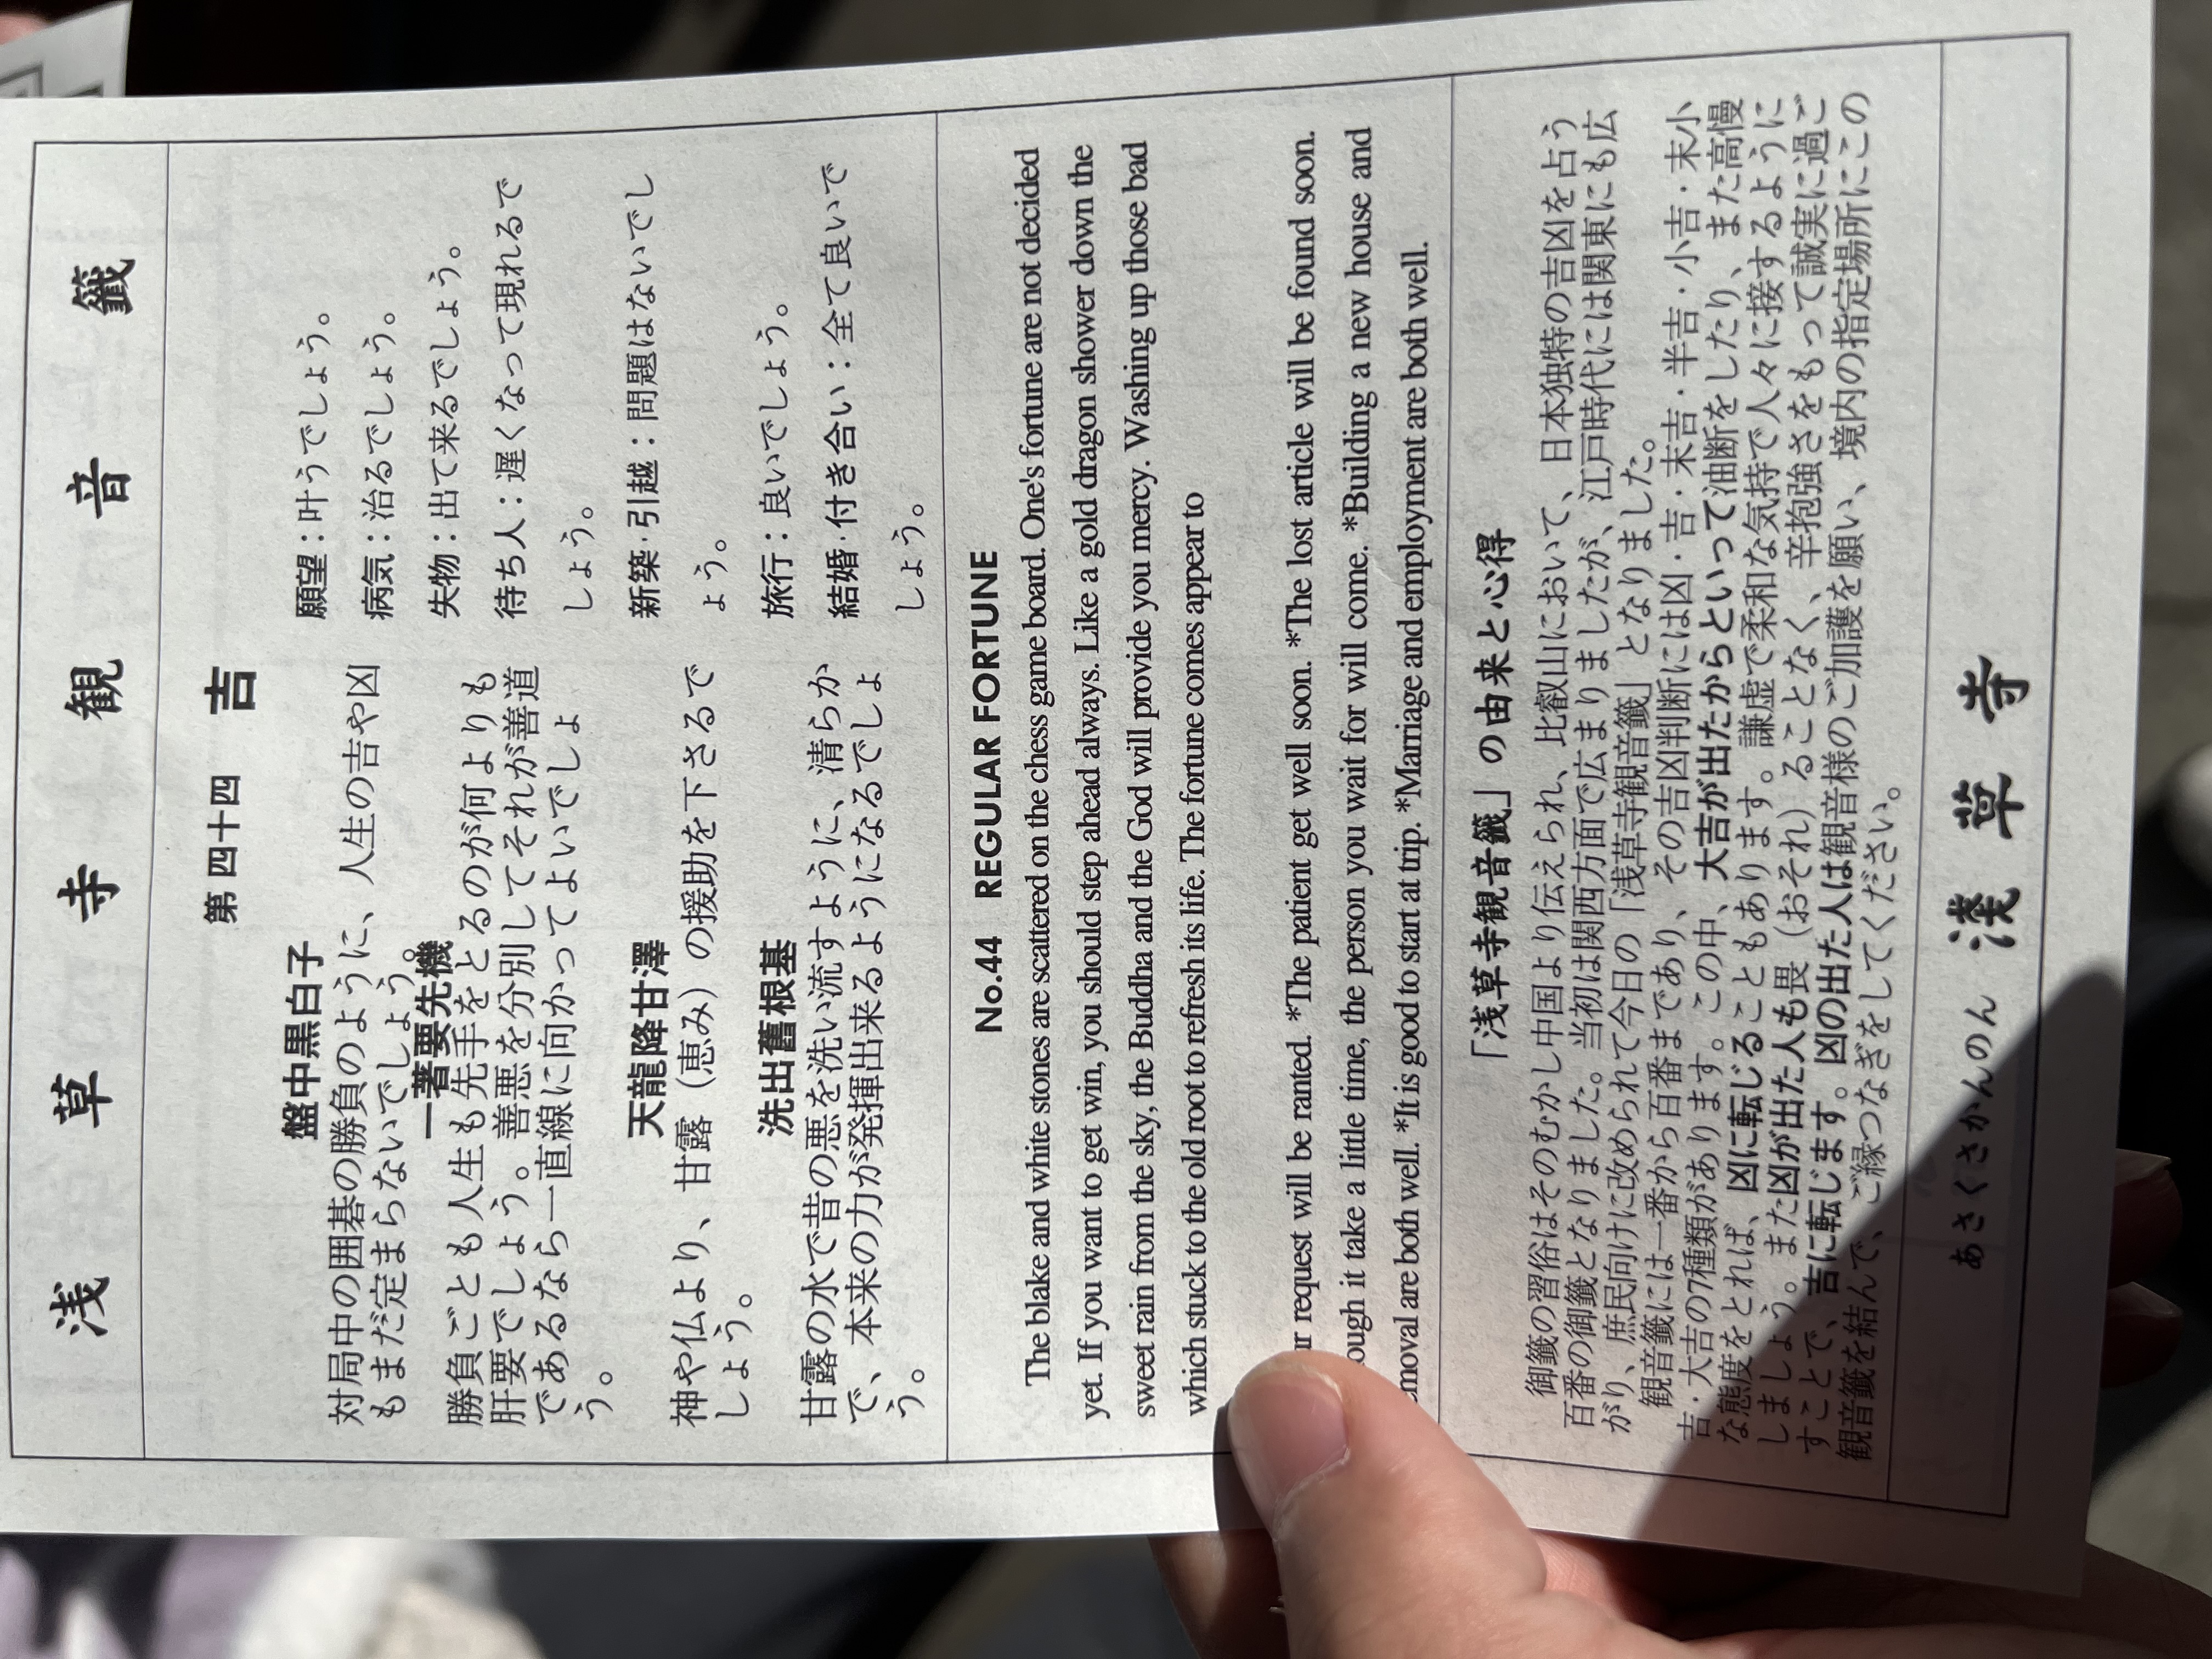 浅草寺観音籤
第四十四 吉
盤中黒白子
対局中の囲碁の勝負のように、人生の吉や凶
もまだ定まらないでしょう。
一著要先機
勝負ごとも人生も先手をとるのが何よりも
肝要でしょう。善悪を分別してそれが善道
であるなら一直線に向かってよいでしょ
う。
天龍降甘澤
神や仏より、甘露（恵み）の援助を下さるで
しょう。
洗出舊根基
甘露の水で昔の悪を洗い流すように、清らか
で、本来の力が発揮出来るようになるでしょ
う。
願望：叶うでしょう。
病気：治るでしょう。
失物：出て来るでしょう。
待ち人：遅くなって現れるで
しょう。
新築・引越：問題はないでし
ょう。
旅行：良いでしょう。
結婚・付き合い：全て良いで
しょう。
No.44 REGULAR FORTUNE
The blake and white stones are scattered on the chess game board. One's fortune are not decided
yet. If you want to get win, you should step ahead always. Like a gold dragon shower down the
sweet rain from the sky, the Buddha and the God will provide you mercy. Washing up those bad
which stuck to the old root to refresh its life. The fortune comes appear to
ur request will be ranted. *The patient get well soon. *The lost article will be found soon.
ough it take a little time, the person you wait for will come. *Building a new house and
moval are both well. *It is good to start at trip. *Marriage and employment are both well.
「浅草寺観音籤」の由来と心得
御籤の習俗はそのむかし中国より伝えられ、比叡山において、日本独特の吉凶を占う
百番の御籤となりました。当初は関西方面で広まりましたが、江戸時代には関東にも広
がり、庶民向けに改められて今日の「浅草寺観音籤」となりました。
観音籤には一番から百番まであり、その吉凶判断には凶・吉・末吉・半吉・小吉・末小
吉・大吉の7種類があります。この中、大吉が出たからといって油断をしたり、また高慢
な態度をとれば、凶に転じることもあります。謙虚で柔和な気持で人々に接するように
しましょう。また凶が出た人も畏（おそれ）ることなく、辛抱強さをもって誠実に過ご
すことで、吉に転じます。凶の出た人は観音様のご加護を願い、境内の指定場所にこの
観音籤を結んで、ご縁つなぎをしてください。
あさくさかんのん 淺草寺